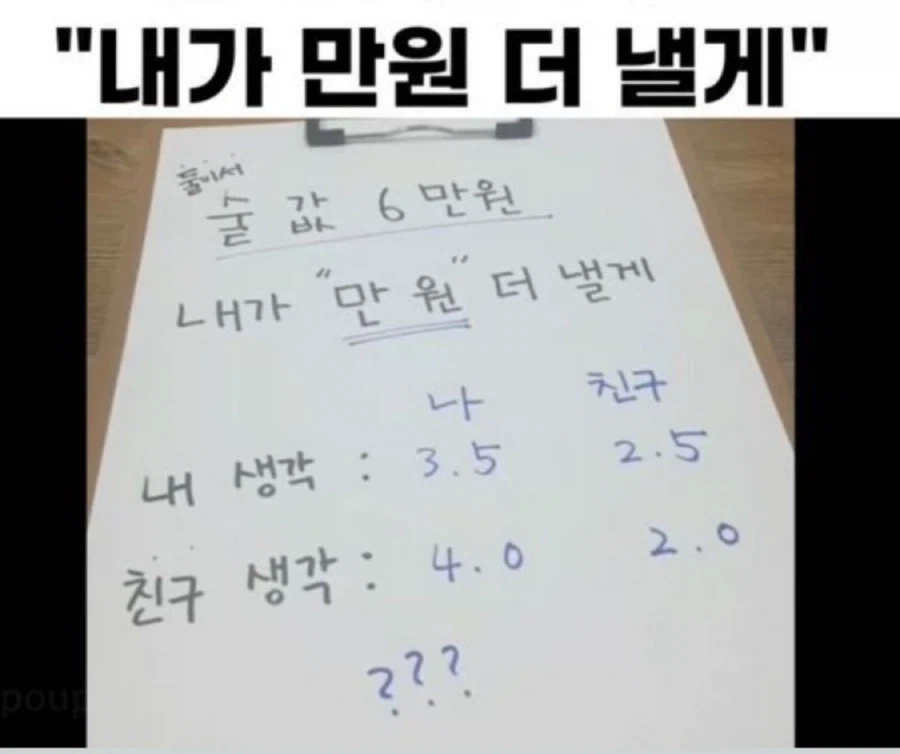 "내가 만원 더 낼게"
둘이서
술 값 6만원
내가 "만 원" 더 낼게
나 친구
내 생각 : 3.5 2.5
친구 생각 : 4.0 2.0
???
poup